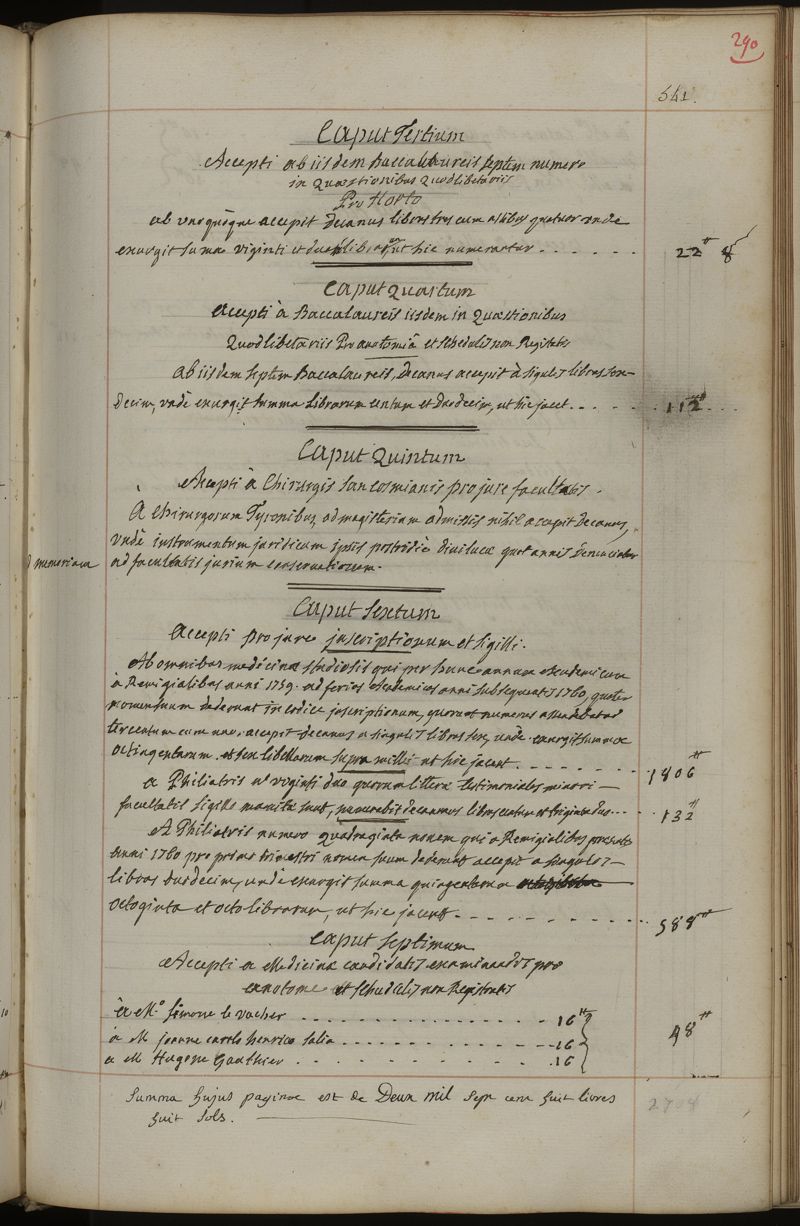 290
541.
Caput Tertium
Accepti ab iisdem Baccalaureis septem numero
in Quæstionibus Quodlibetariis
Pro Horto
ab unoquoque accepit Decanus libras tres cum assibus quatuor unde
exurgit summa viginti et duarum librarum ut hic numerantur . . . . . . 22 ₶ 8 s
Caput Quartum
Accepti à Baccalaureis iisdem in Quæstionibus
Quodlibetariis Pro anatomiâ et schedulis non Registratis
ab iisdem septem Baccalaureis, Decanus accepit à singulis libras sex-
decim, undè exurgit summa librarum centum et duodecim, ut hic jacet . . . . . 112 ₶
Caput Quintum
Accepti à Chirurgis sancosmianis pro jure facultatis .
A chirurgorum Tyronibus, ad magisterium admissis nihil accepit decanus,
undè instrumentum juridicum ipsis postridiè divi lucæ quot annis denunciatur
ad facultatis jurium conservationem.
d memoriam
Caput Sextum
Accepti pro jure inscriptionum et sigilli.
Ab omnibus medicinæ studiosis qui per hunc annum academicum
à Remigialibus anni 1759. ad ferias academicas anni subsequentis 1760, quater
nomen suum dederunt in codice inscriptionum, quorum numerus ascendebat ad
tercentum cum uno, accepit decanus a singulis libras sex, unde exurgit summa
octingentarum et sex libellarum supra mille ut hic jacent . . . . . . . 1806 ₶
a Philiatris viginti duo quorum litteræ testimoniales minori
facultatis sigillo munitæ sunt, numerabit decanus libras centum et triginta duo . . . 132 ₶
A Philiatris numero quadraginta novem qui a Remigialibus præsentis
anni 1760 pro primo trimestri nomen suum dederunt accepit a singulis
libras duodecim, undè exurgit summa quingentarum
octoginta et octo librarum, ut hic jacent . . . . . . . . . 588 ₶
Caput Septimum
Accepti a Medicinæ candidatis examinandis pro
anatome et schedulis non Registratis
à M.º Simone le vacher . . . . . . . . . . . . . . 16 ₶
a M joanne carolo henrico salin . . . . . . . . . . . . 16 48 ₶
a M Hugone Gauthier . . . . . . . . . . . . . 16
Summa hujus paginæ est de Deux mil sept cent huit livres
huit sols .
2708